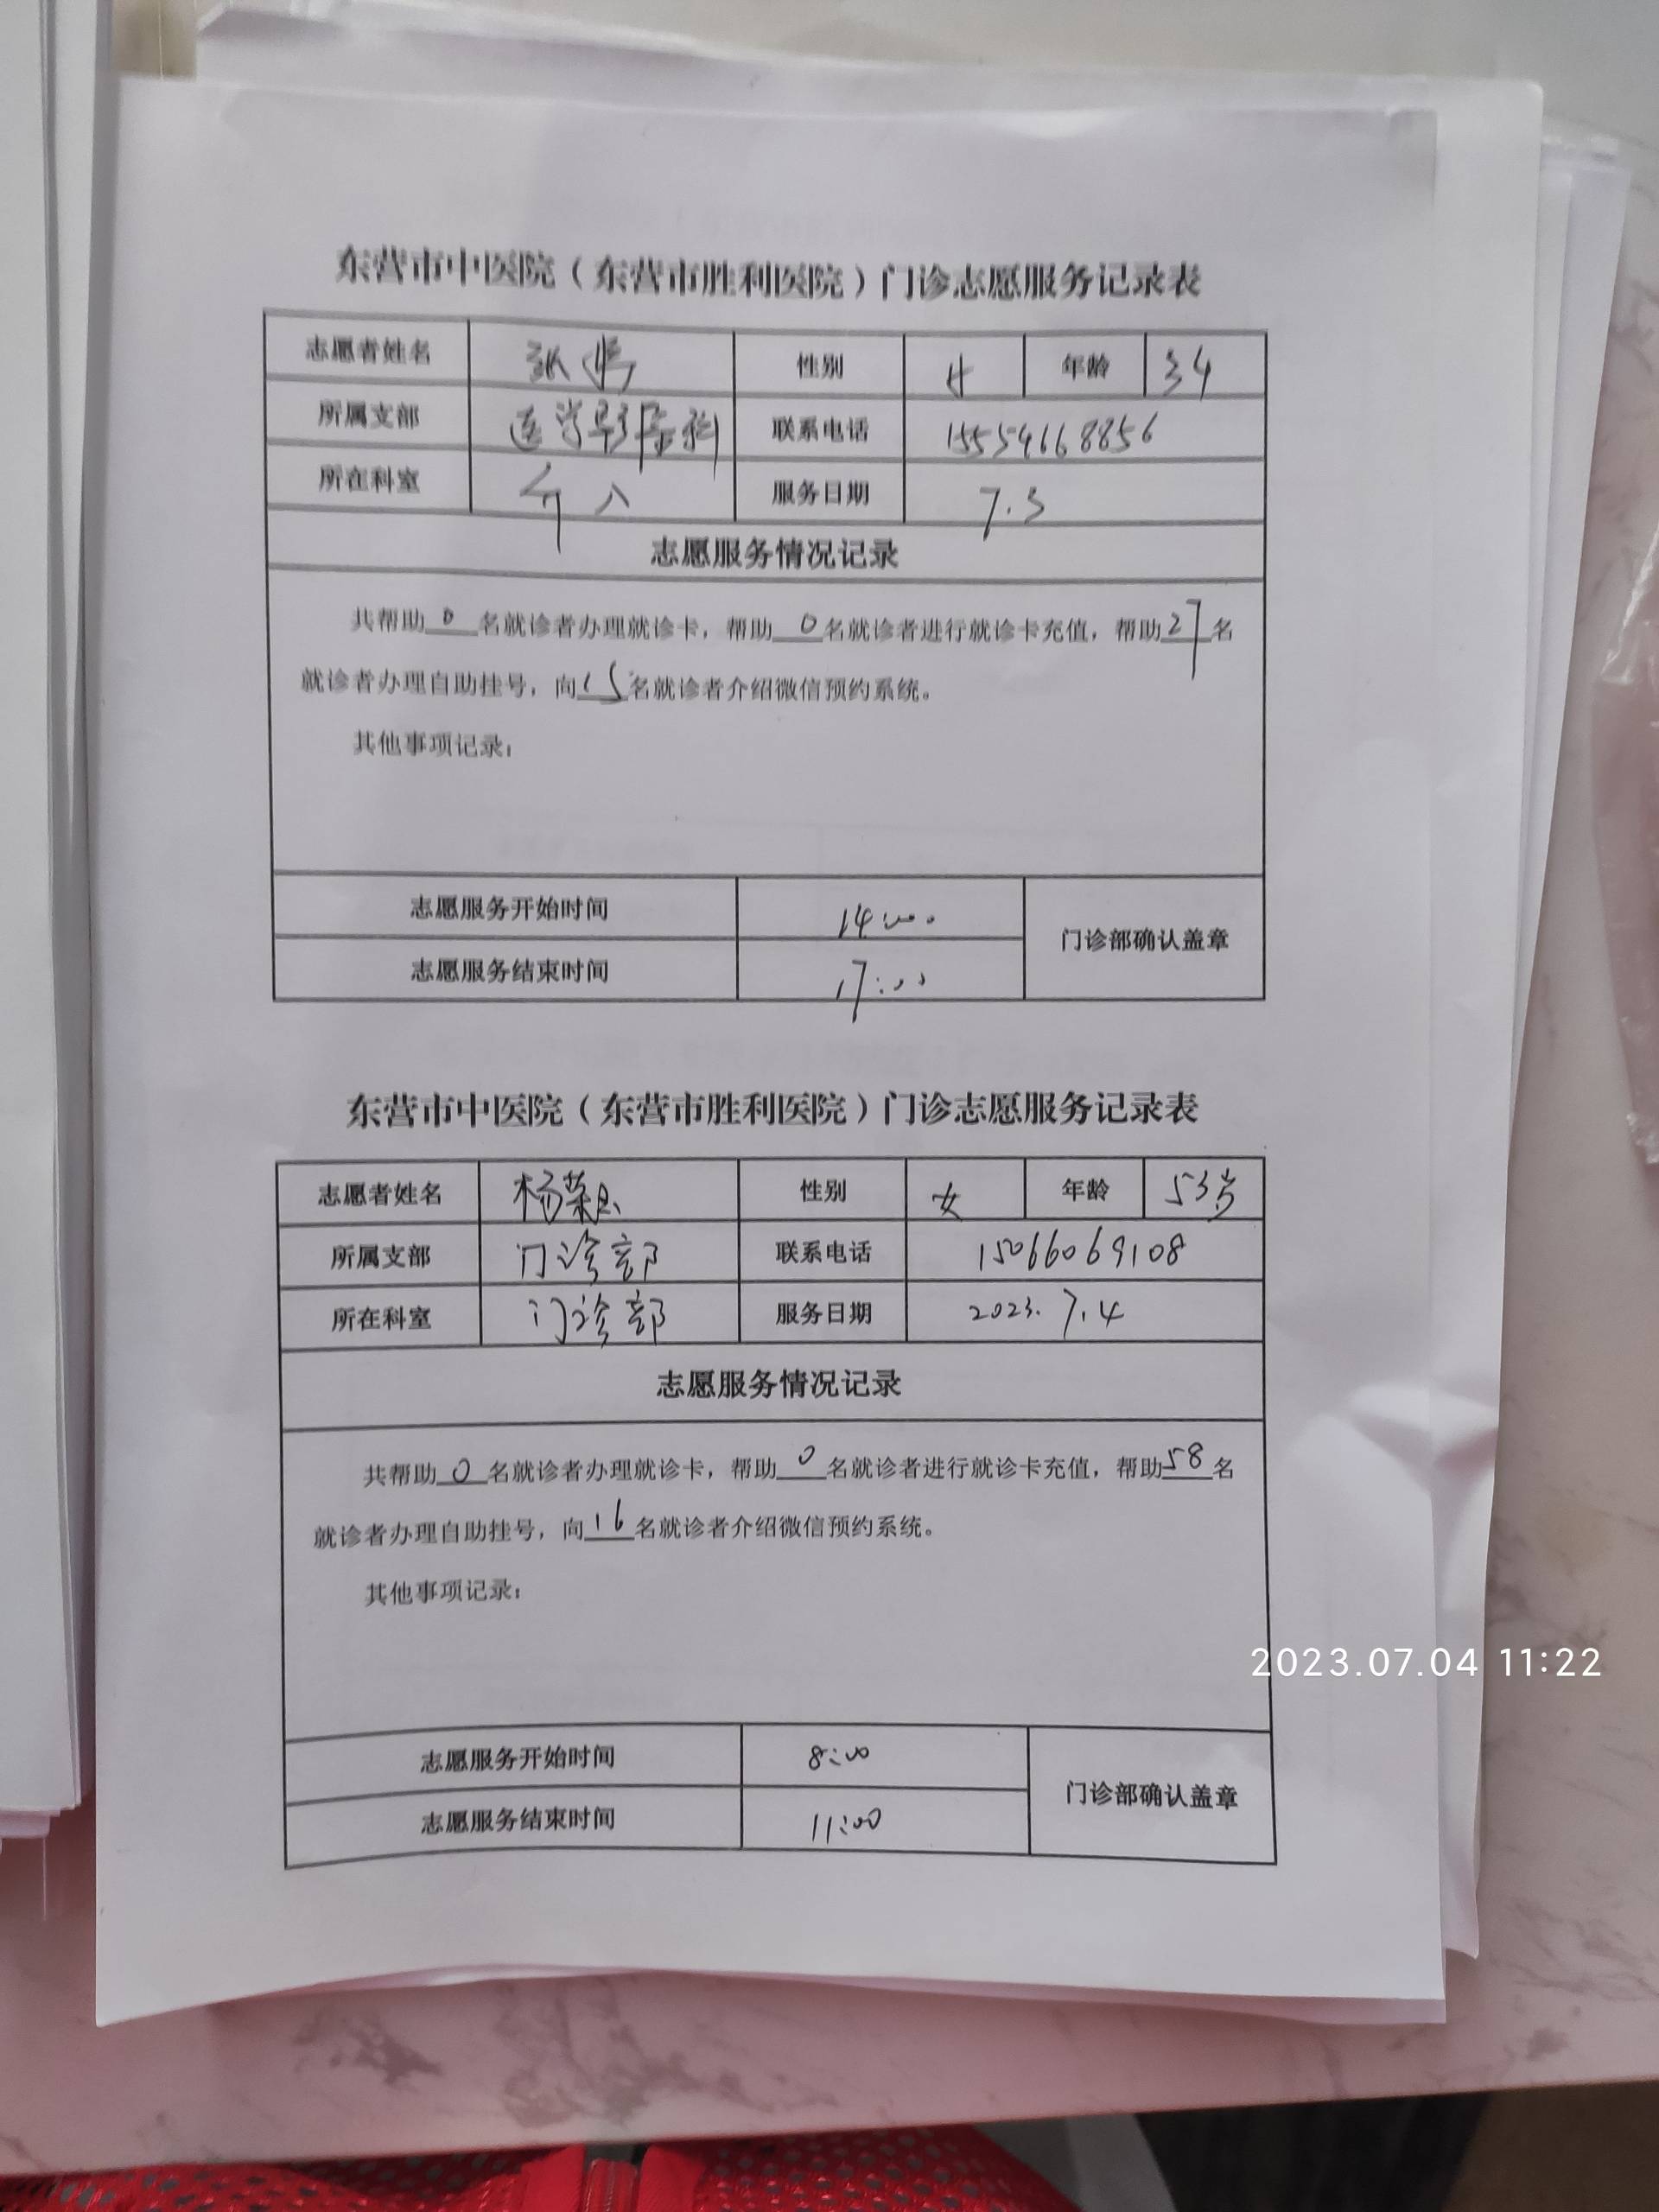 东营市中医院（东营市胜利医院）门诊志愿服务记录表
志愿者姓名 性别 女 年龄 34
所属支部 医学影像科 联系电话 15554668856
所在科室 介入 服务日期 7.3
志愿服务情况记录
共帮助0名就诊者办理就诊卡，帮助0名就诊者进行就诊卡充值，帮助27名
就诊者办理自助挂号，向15名就诊者介绍微信预约系统。
其他事项记录：
志愿服务开始时间 14:00
门诊部确认盖章
志愿服务结束时间 17:00
东营市中医院（东营市胜利医院）门诊志愿服务记录表
志愿者姓名 杨 性别 女 年龄 53岁
所属支部 门诊部 联系电话 15066069108
所在科室 门诊部 服务日期 2023.7.4
志愿服务情况记录
共帮助0名就诊者办理就诊卡，帮助0名就诊者进行就诊卡充值，帮助58名
就诊者办理自助挂号，向16名就诊者介绍微信预约系统。
其他事项记录：
2023.07.04 11:22
志愿服务开始时间 8:00
门诊部确认盖章
志愿服务结束时间 11:00